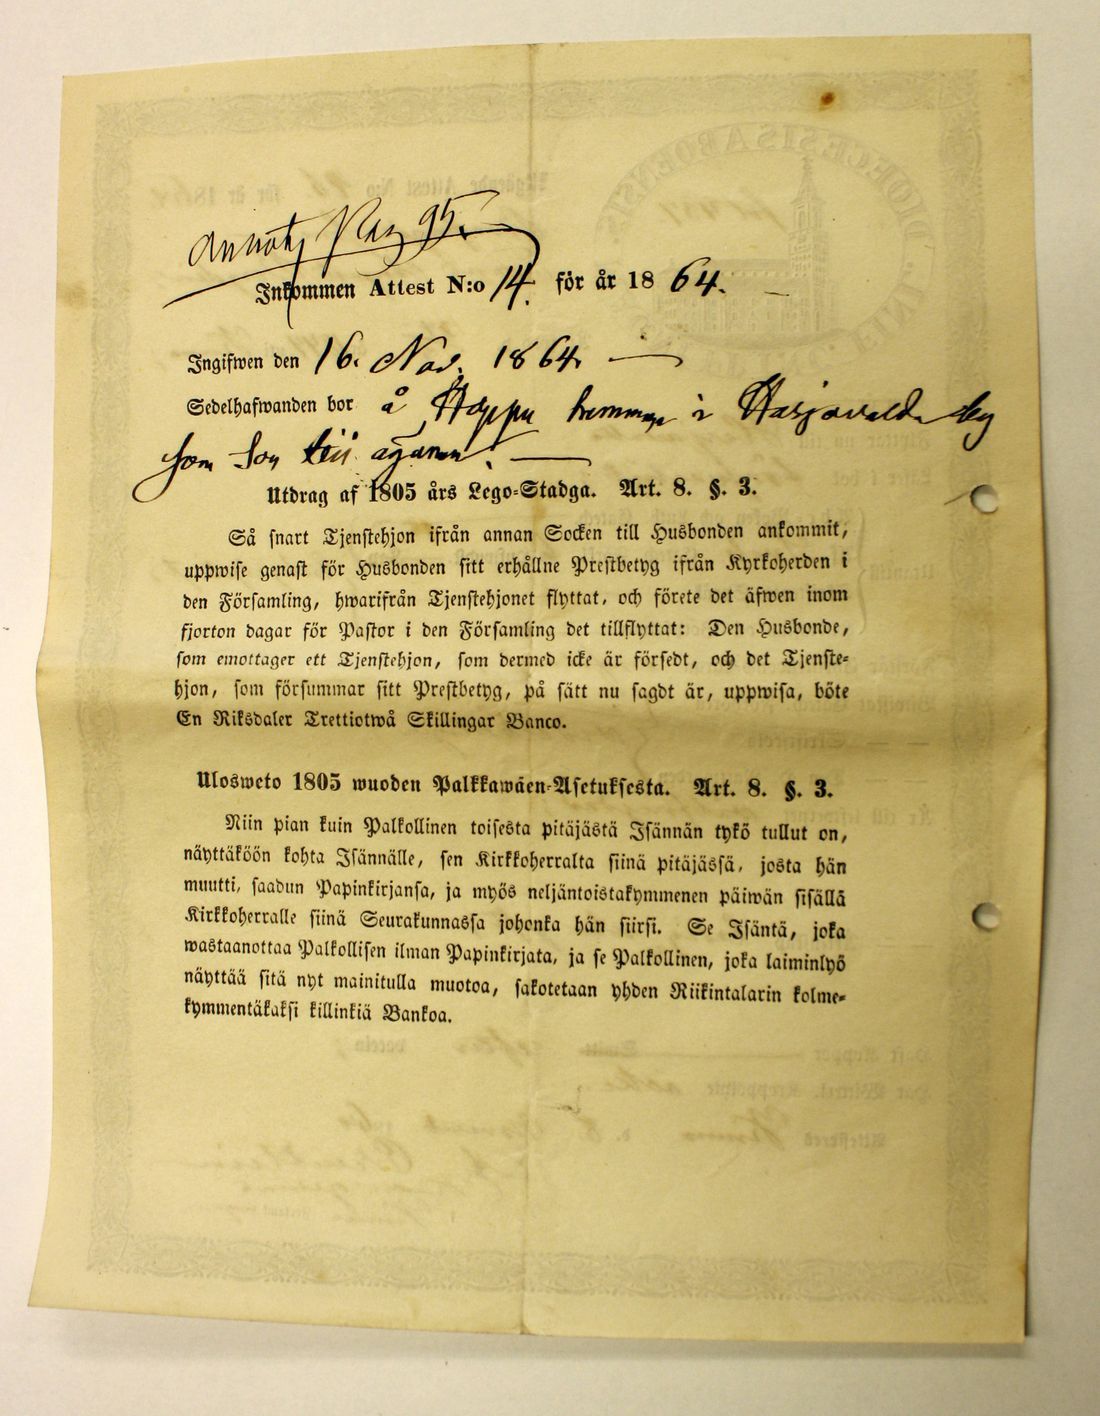 Annot. Pag 95.
Inkommen Attest N:o 14. för år 1864.
Ingifwen den 16. Nov. 1864.
Sedelhafwanden bor å Hoppu hemman i Harjavalda by
som Son till ägaren.
Utdrag af 1805 års Lego-Stadga. Art. 8. §. 3.
Så snart Tjenstehjon ifrån annan Socken till Husbonden ankommit,
uppwise genast för Husbonden sitt erhållne Prestbetyg ifrån Kyrkoherden i
den Församling, hwarifrån Tjenstehjonet flyttat, och förete det äfwen inom
fjorton dagar för Pastor i den Församling det tillflyttat: Den Husbonde,
som emottager ett Tjenstehjon, som dermed icke är försedt, och det Tjenste-
hjon, som försummar sitt Prestbetyg, på sätt nu sagdt är, uppwisa, böte
En Riksdaler Trettiotwå Skillingar Banco.
Ulosweto 1805 wuoden Palkkawäen-Asetuksesta. Art. 8. §. 3.
Niin pian kuin Palkollinen toisesta pitäjästä Isännän tykö tullut on,
näyttäköön kohta Isännälle, sen Kirkkoherralta siinä pitäjässä, josta hän
muutti, saadun Papinkirjansa, ja myös neljäntoistakymmenen päiwän sisällä
Kirkkoherralle siinä Seurakunnassa johonka hän siirsi. Se Isäntä, joka
wastaanottaa Palkollisen ilman Papinkirjata, ja se Palkollinen, joka laiminlyö
näyttää sitä nyt mainitulla muotoa, sakotetaan yhden Riikintalarin kolme-
kymmentäkaksi killinkiä Bankoa.